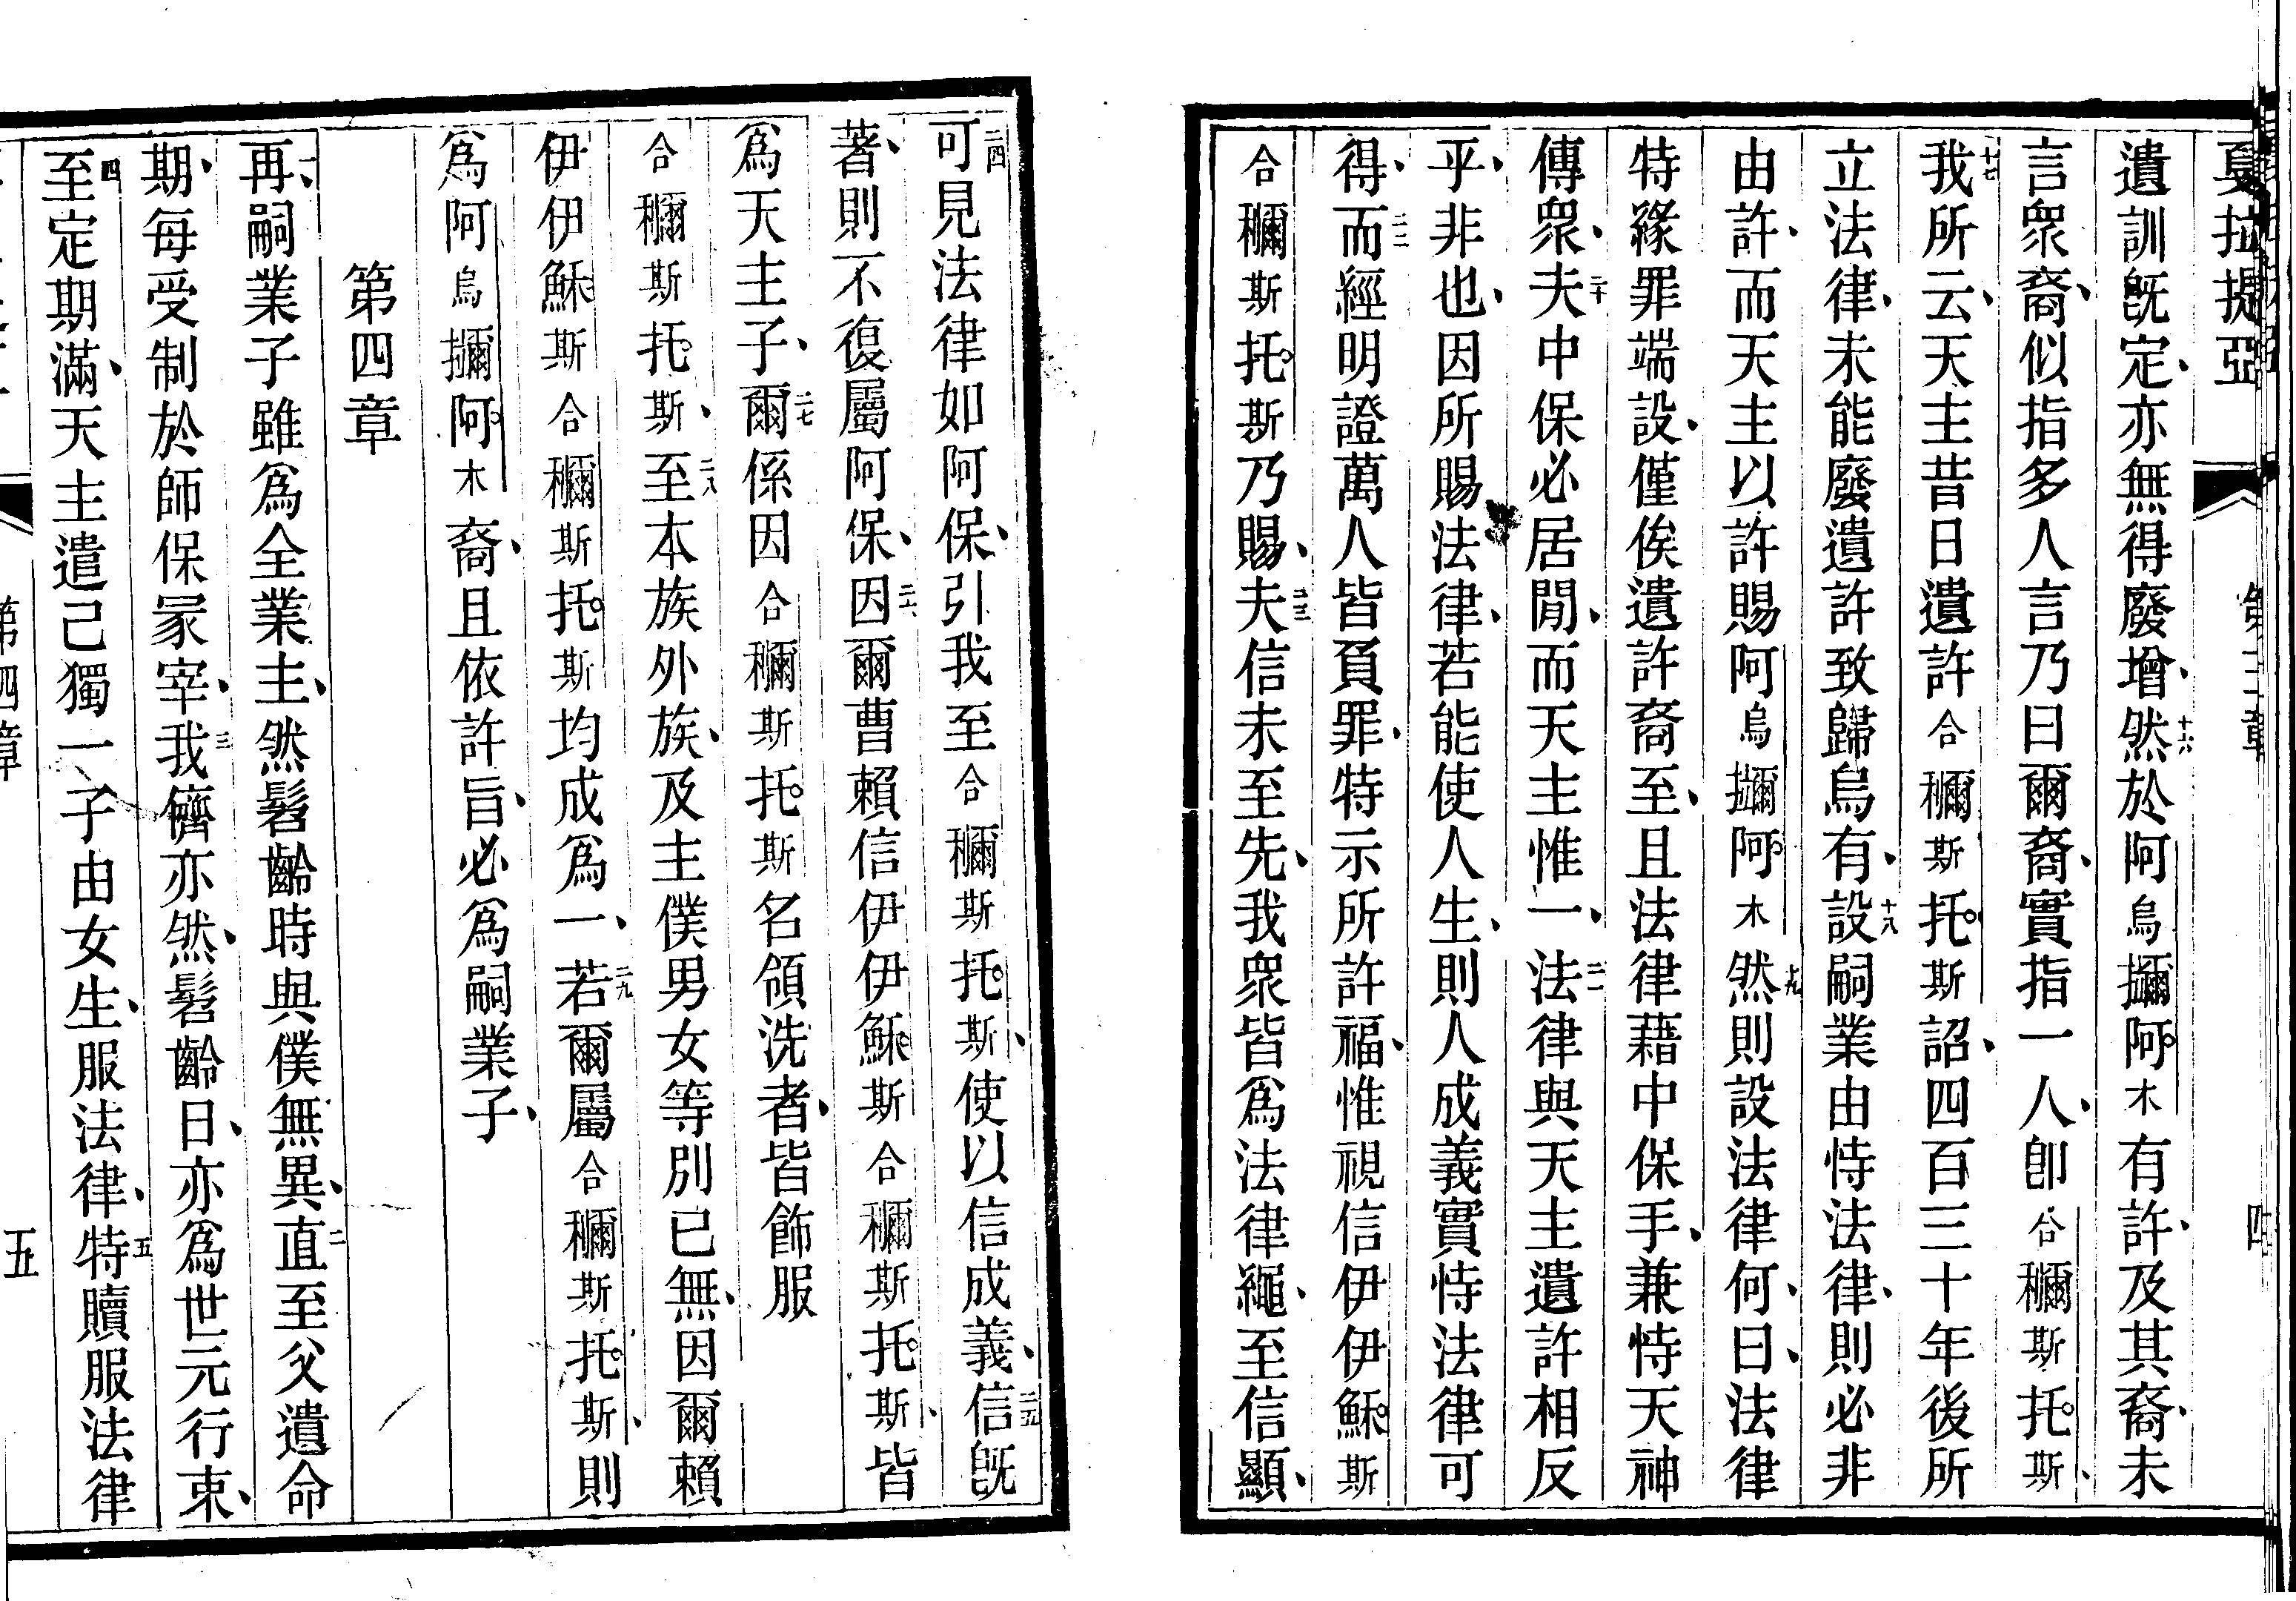 戛拉提亞
第三章
四
遺訓旣定、亦無得廢增、十六然於阿烏攡阿木有許、及其裔、未
言眾裔、似指多人言、乃曰爾裔、實指一人、卽合穪斯托斯、
十七我所云、天主昔日遺許合穪斯托斯詔、四百三十年後所
立法律、未能廢遺許致歸烏有、十八設嗣業由恃法律、則必非
由許、而天主以許賜阿烏攡阿木十九然則設法律何、曰、法律
特緣罪端設、僅俟遺許裔至、且法律藉中保手、兼恃天神
傳眾、二十夫中保必居閒、而天主惟一、二一法律與天主遺許相反
乎、非也、因所賜法律、若能使人生、則人成義實恃法律可
得、二二而經明證萬人皆負罪、特示所許福、惟視信伊伊穌斯
合穪斯托斯乃賜、二三夫信未至先、我眾皆爲法律繩、至信顯、
二四可見法律如阿保、引我至合穪斯托斯、使以信成義、二五信旣
著、則不復屬阿保、二六因爾曹賴信伊伊穌斯合穪斯托斯、皆
爲天主子、二七爾係因合穪斯托斯名領洗者、皆飾服
合穪斯托斯、二八至本族外族、及主僕男女等別已無、因爾賴
伊伊穌斯合穪斯托斯均成爲一、二九若爾屬合穪斯托斯、則
爲阿烏攡阿木裔、且依許旨、必爲嗣業子、
第四章
一再、嗣業子雖爲全業主、然髫齡時與僕無異、二直至父遺命
期、每受制於師保冢宰、三我儕亦然、髫齡日、亦爲世元行束、
四至定期滿、天主遣己獨一子由女生、服法律、五特贖服法律
第四章
五